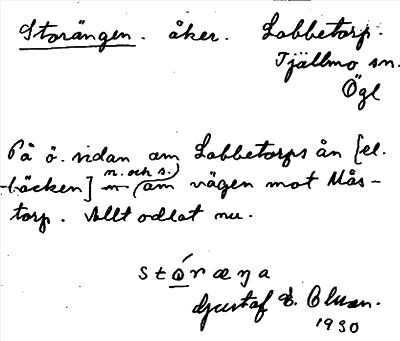 Storängen. åker. Labbetorp.
Tjällmo sn.
Ögl
På ö. sidan am Labbetorps ån [el.
-bäcken] n. och s.) (am vägen mot Mås-
torp. Allt odlat nu.
stó̲ræŋa
Gustaf E. Olsson.
1930